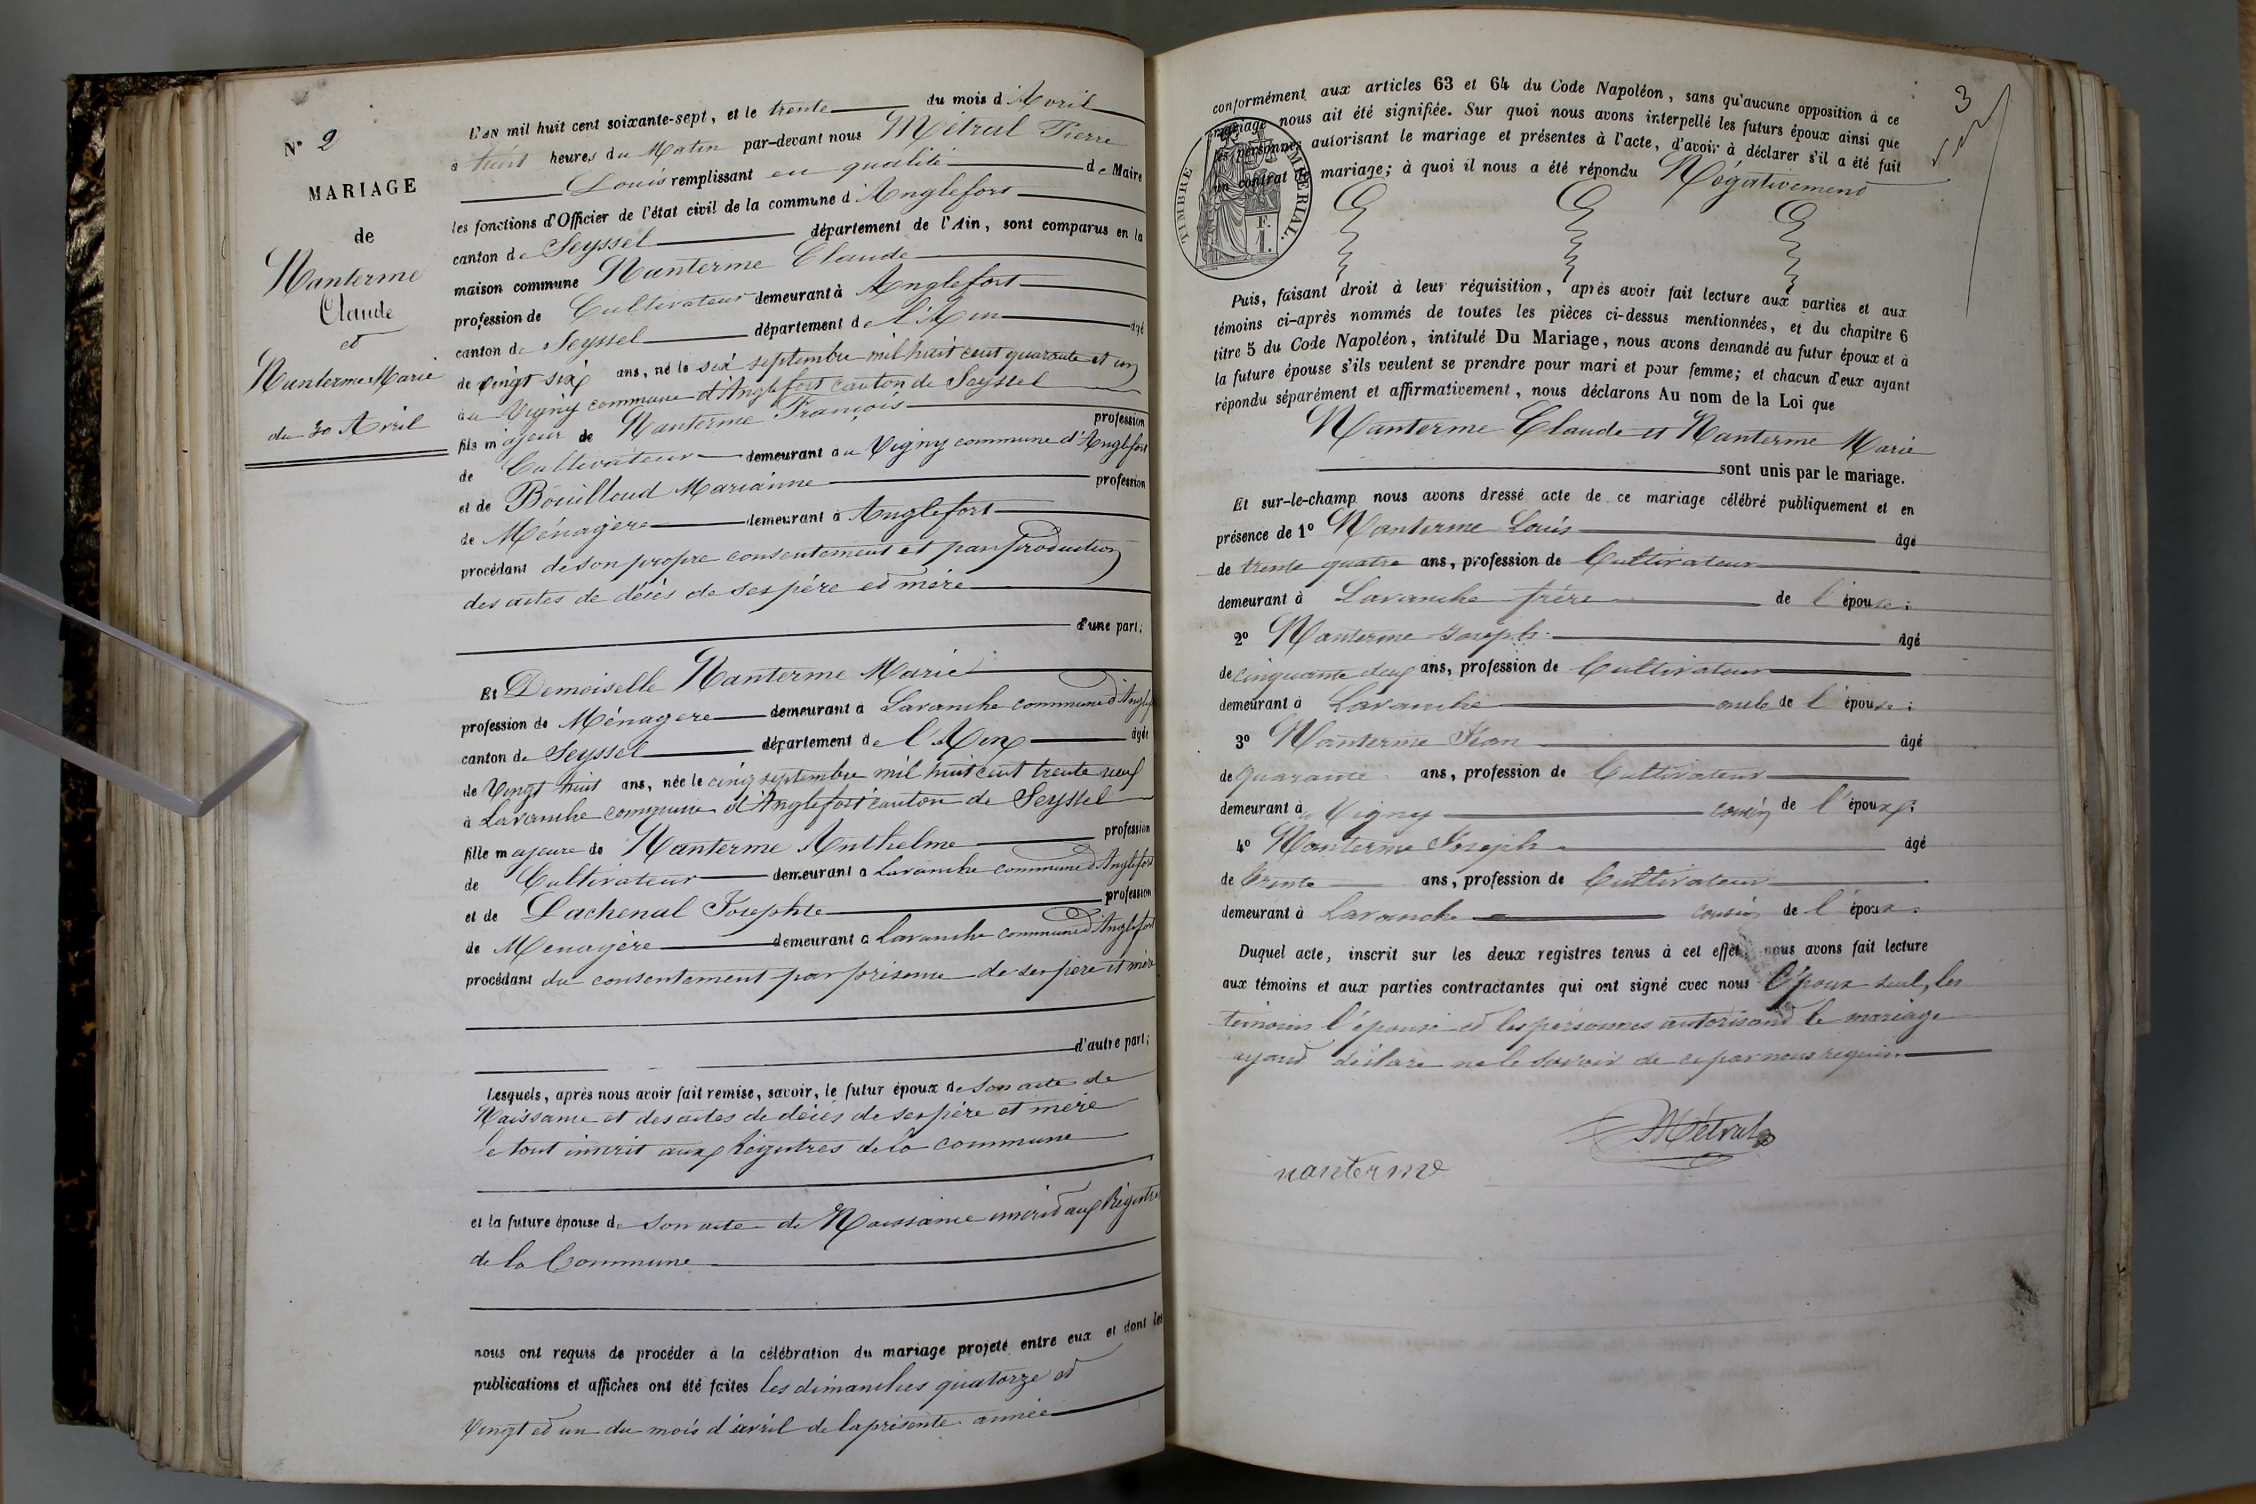 N° 2
MARIAGE
de
Nanterme
Claude
et
Nanterme Marie
du 30 Avril
L'AN mil huit cent soixante-sept, et le trente du mois d'Avril
à huit heures du Matin par-devant nous Métral Pierre
Louis remplissant en qualité de Maire
les fonctions d'Officier de l'état civil de la commune d'Anglefort
canton de Seyssel département de l'Ain, sont comparus en la
maison commune Nanterme Claude
profession de Cultivateur demeurant à Anglefort
canton de Seyssel département de l'Ain âgé
de vingt six ans, né le six septembre mil huit cent quarante et un
au Vigny commune d'Anglefort canton de Seyssel
fils majeur de Nanterme François profession
de Cultivateur demeurant au Vigny commune d'Anglefort
et de Bouilloud Marianne profession
de Ménagère demeurant à Anglefort
procédant de son propre consentement et par production
des actes de décès de ses père et mère
d'une part;
Et Demoiselle Nanterme Marie
profession de Ménagere demeurant à Lavanche commune d'Anglefort
canton de Seyssel département de l'Ain âgée
de Vingt huit ans, née le cinq septembre mil huit cent trente neuf
à Lavanche commune d'Anglefort canton de Seyssel
fille majeure de Nanterme Anthelme profession
de Cultivateur demeurant à Lavanche commune d'Anglefort
et de Lachenal Josephte profession
de Ménagère demeurant à Lavanche commune d'Anglefort
procédant du consentement par présence de ses père et mère
d'autre part;
Lesquels, après nous avoir fait remise, savoir, le futur époux de son acte de
Naissance et des actes de décès de ses père et mère
le tout inscrit aux Régistres de la commune
et la future épouse de son acte de Naissance inscrit aux Régistres
de la Commune
nous ont requis de procéder à la célébration du mariage projeté entre eux et dont les
publications et affiches ont été faites les dimanches quatorze et
Vingt et un du mois d'avril de la présente année
3
conformément aux articles 63 et 64 du Code Napoléon, sans qu'aucune opposition à ce
mariage nous ait été signifiée. Sur quoi nous avons interpellé les futurs époux ainsi que
les personnes autorisant le mariage et présentes à l'acte, d'avoir à déclarer s'il a été fait
un contrat de mariage; à quoi il nous a été répondu Négativement
TIMBRE IMPÉRIAL.
F.
1.
Puis, faisant droit à leur réquisition, après avoir fait lecture aux parties et aux
témoins ci-après nommés de toutes les pièces ci-dessus mentionnées, et du chapitre 6
titre 5 du Code Napoléon, intitulé Du Mariage, nous avons demandé au futur époux et à
la future épouse s'ils veulent se prendre pour mari et pour femme; et chacun d'eux ayant
répondu séparément et affirmativement, nous déclarons Au nom de la Loi que
Nanterme Claude et Nanterme Marie
sont unis par le mariage.
Et sur-le-champ nous avons dressé acte de ce mariage célébré publiquement et en
présence de 1° Nanterme Louis âgé
de trente quatre ans, profession de Cultivateur
demeurant à Lavanche frère de l'épouse;
2° Nanterme Joseph âgé
de cinquante deux ans, profession de Cultivateur
demeurant à Lavanche oncle de l'épouse;
3° Nanterme Jean âgé
de quarante ans, profession de Cultivateur
demeurant à Vigny cousin de l'époux;
4° Nanterme Joseph âgé
de trente ans, profession de Cultivateur
demeurant à Lavanche cousin de l'époux.
Duquel acte, inscrit sur les deux registres tenus à cet effet, nous avons fait lecture
aux témoins et aux parties contractantes qui ont signé avec nous l'époux seul, les
témoins l'épouse et les personnes autorisant le mariage
ayant déclaré ne le savoir de ce par nous requis.
Métral
nanterme